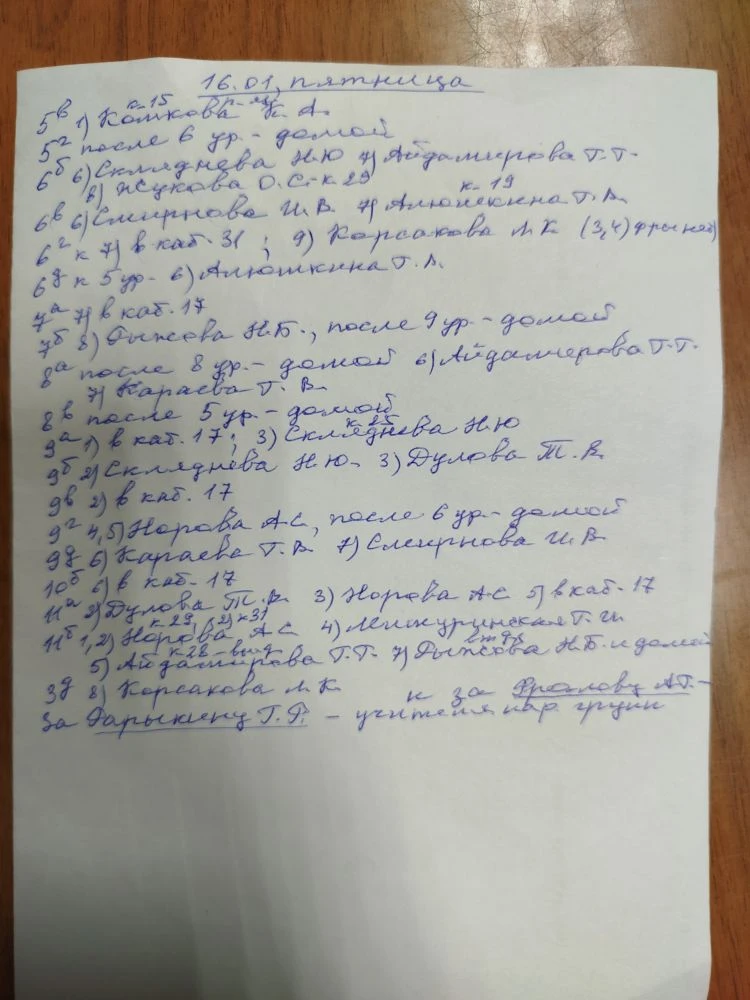 16.01, пятница
к.15
5в 1) Комкова К. А.
5г после 6 ур. - домой
6б 6) Скляднева Н.Ю 7) Айдамирова Т.Т.
8) Жукова О.С. - к.29
к. 19
6в 6) Смирнова И.В. 7) Алюшкина Т.В.
6г к 7) в каб. 31 ; 9) Корсакова Л.К. (3,4)
6д к 5 ур. 6) Алюшкина Т.В.
7а 7) в каб. 17
7б 8) Рыжова Н.Б., после 9 ур. - домой
8а после 8 ур. - домой 6) Айдамирова Т.Т.
7) Караева Т. В.
8в после 5 ур. - домой
к 25
9а 1) в каб. 17 ; 3) Скляднева Н.Ю
9б 2) Скляднева Н.Ю. 3) Дулова Т.В.
9в 2) в каб. 17
9г 4,5) Норова А.С., после 6 ур. - домой
9д 6) Караева Т.В. 7) Смирнова И.В.
10б 6) в каб. 17
11а 2) Дулова Т.В. 3) Норова А.С 5) в каб. 17
к 29, 2) к31
11б 1,2) Норова А С. 4) Т.
к 28
5) Айдамирова Т.Т. 7) Рыжова Н.Б. и домой
3д 8) Корсакова Л.К. и за Фролову А.Г. -
За Гарыкину Т.Г. - учителя пар. групп